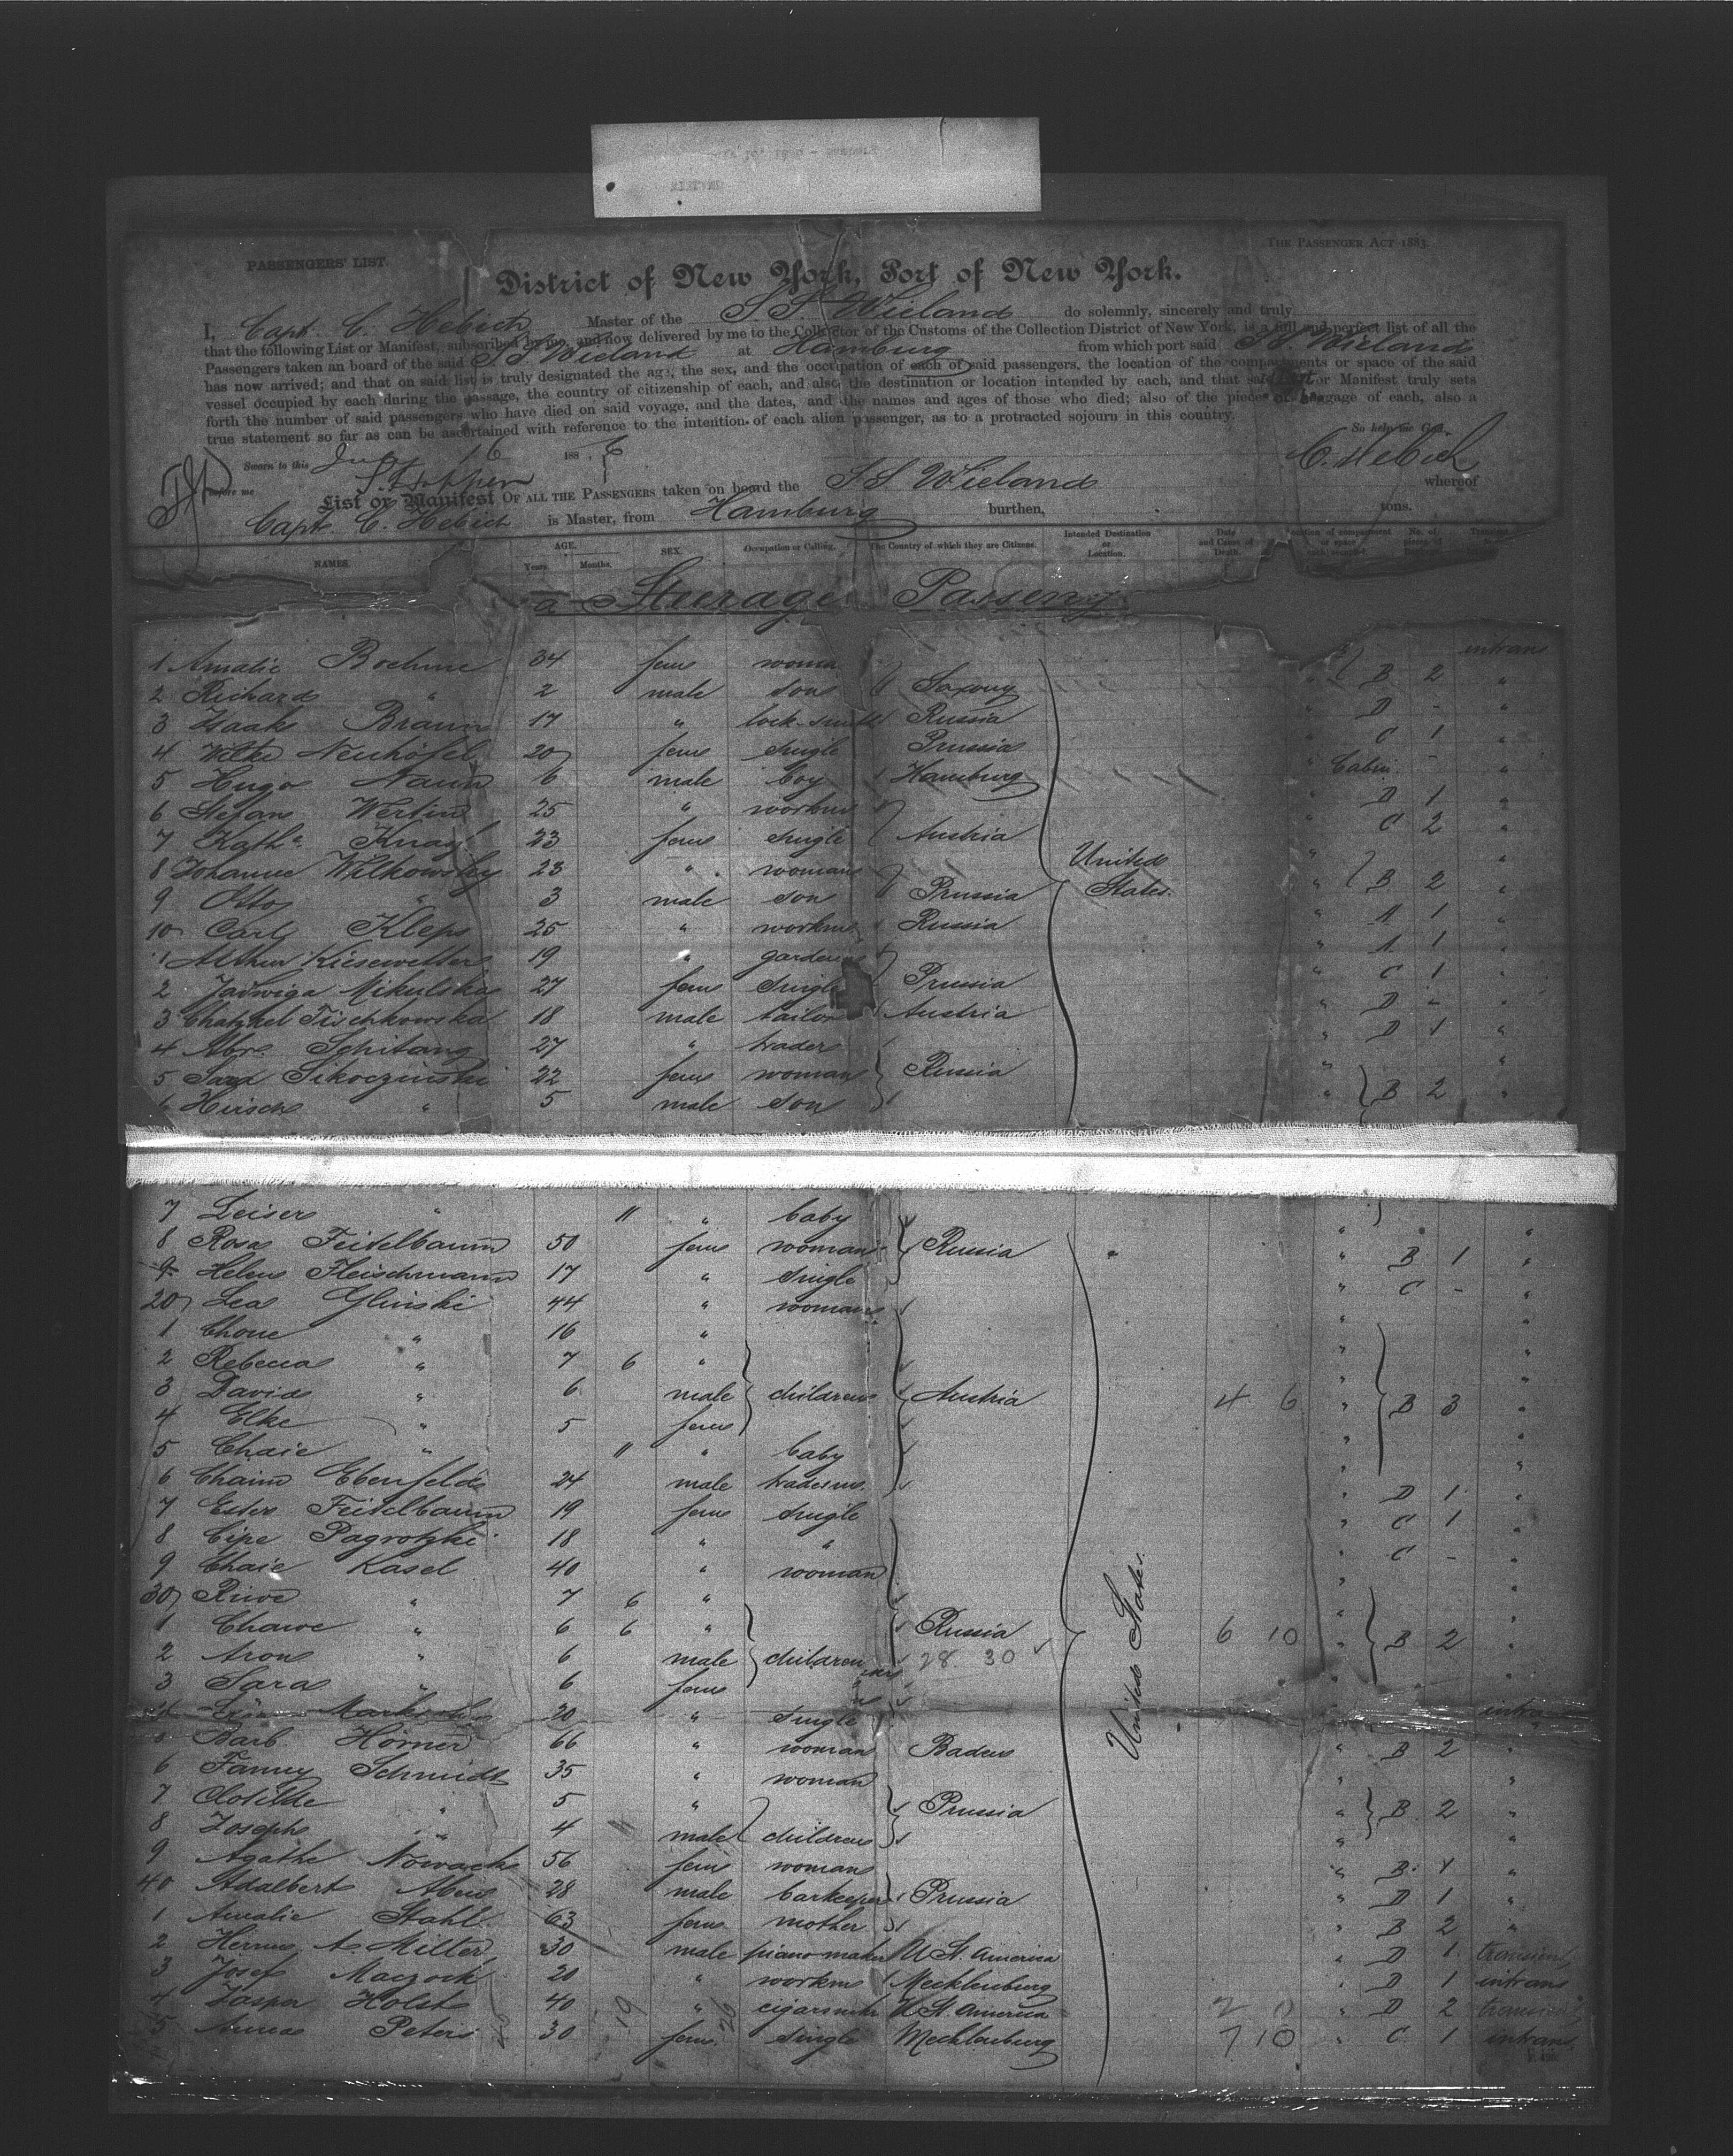 PASSENGERS' LIST.
THE PASSENGER ACT 1883.
District of New York, Port of New York.
I, Capt. C. Hebich Master of the S.S. Wieland do solemnly, sincerely and truly
that the following List or Manifest, subscribed by me, and now delivered by me to the Collector of the Customs of the Collection District of New York, is a full and perfect list of all the
Passengers taken on board of the said S.S. Wieland at Hamburg from which port said S.S. Wieland
has now arrived; and that on said list is truly designated the age, the sex, and the occupation of each of said passengers, the location of the compartments or space of the said
vessel occupied by each during the passage, the country of citizenship of each, and also the destination or location intended by each, and that said List or Manifest truly sets
forth the number of said passengers who have died on said voyage, and the dates, and the names and ages of those who died; also of the pieces of baggage of each, also a
true statement so far as can be ascertained with reference to the intention of each alien passenger, as to a protracted sojourn in this country.
So help me God,
Sworn to this 16 188 6 C. Hebich
before me
List or Manifest OF ALL THE PASSENGERS taken on board the S.S. Wieland whereof
Capt. C. Hebich is Master, from Hamburg burthen, tons.
NAMES. AGE. Years. Months. SEX. Occupation or Calling. The Country of which they are Citizens. Intended Destination or Location. Date and Cause of Death. No. of
Steerage Passeng
1 Amalie Boehme 34 fem woma intrans
2 Richard " 2 male son Saxony " B 2 "
3 Isaak Braun 17 " lock-smith Russia " D - "
4 Neuhöfel 20 fem single Prussia " C 1 "
5 Hugo Naun 6 male boy Hamburg " Cabin - "
6 Stefan Wertin 25 " workm " D 1 "
7 Kath Knay 23 fem single Austria " C 2 "
8 Johanne Wilkowsky 23 " woman United " "
9 Otto " 3 male son Prussia States. " B 2 "
10 Carl Kleps 25 " workm Russia " A 1 "
1 Arthur Kiesewetter 19 " gardener " A 1 "
2 Jadwiga Mikulska 27 fem single Prussia " C 1 "
3 Tischkowska 18 male tailor Austria " D - "
4 Abr. Schitang 27 " trader " D 1 "
5 Sara Sikoczinski 22 fem woman Russia " "
6 Hirsch " 5 male son " B 2 "
7 Leiser " 11 " baby " "
8 Rosa Feitelbaum 50 fem woman Russia " " B 1 "
9 Helene Fleischmann 17 " single " C - "
20 Lea Glinski 44 " woman " "
1 Chone " 16 " " "
2 Rebecca " 7 6 " " "
3 David " 6 male children Austria 4 6 " B 3 "
4 Elke " 5 fem " "
5 Chaie " 11 " baby " "
6 Chaim Ebenfeld 24 male tradesm. " D 1 "
7 Ester Feitelbaum 19 fem single " C 1 "
8 Cipe Pagrotzki 18 " " " C - "
9 Chaie Kasel 40 " woman " "
30 Riwe " 7 6 " " "
1 Chawe " 6 6 " Russia 6 10 " B 2 "
2 Aron " 6 male children 28 30 "
3 Sara " 6 fem "
United States.
20 " single intra
Barb Hörner 66 " woman Baden " B 2 "
6 Fanny Schmidt 35 " woman " "
7 Clotilde " 5 " Prussia " B 2 "
8 Joseph " 4 male children " "
9 Agathe Nowack 56 fem woman " B 1 "
40 Adalbert Aben 28 male barkeeper Prussia " D 1 "
1 Amalie Stahl 63 fem mother " B 2 "
2 Herm. A. Miller 30 male piano maker U St. America " D 1 transient
3 Josef Maczock 20 " workm Mecklenburg " D 1 intrans
4 Jasper Holst 40 19 " U St. America 2 0 " D 2 transient
5 Anna Peters 30 fem. single Mecklenburg 7 10 " C 1 intrans